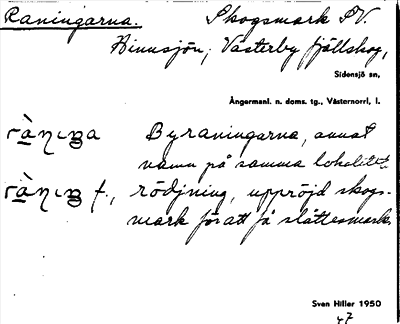 Raningarna. Skogsmark SV.
Hinnsjön, Västerby fjällskog,
Sidensjö sn,
Ångermanl. n. doms. tg., Västernorrl. l.
Byraningarna, annat
namn på samma lokalitet.
f., rödjning, uppröjd skogs-
mark för att få slåttesmark.
Sven Hiller 1950
47